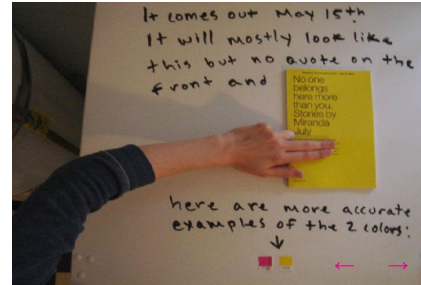 It comes out May 15th
It will mostly look like
this but no quote on the
front and
No one
belongs
here more
than you.
Stories by
Miranda
July
here are more accurate
examples of the 2 colors: